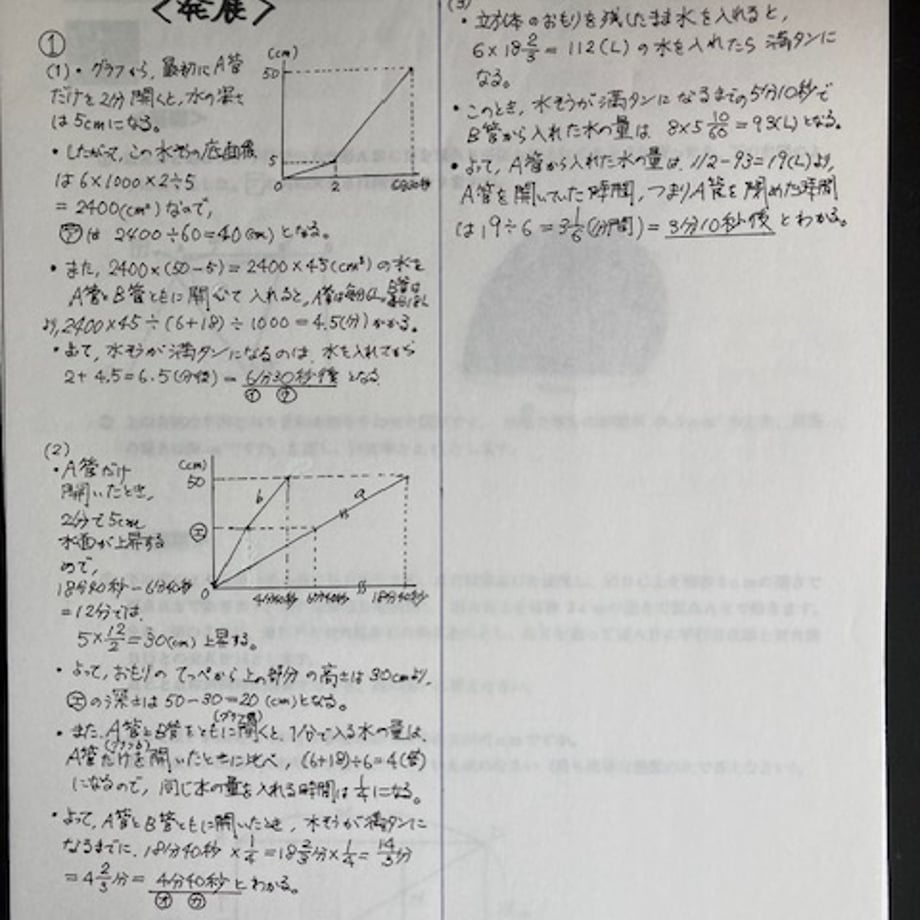 <発展>
①
(1)・グラフから、最初にA管
だけを2分開くと、水の深さ
は5cmになる。
・したがって、この水そうの底面積
は 6×1000×2÷5
=2400(cm²)なので、
㋐は 2400÷60=40(cm)となる。
(cm)
50
5
0
2
6分30秒
・また、2400×(50-5)=2400×45(cm³)の水を
A管とB管ともに開いて入れると、A管は毎分6L、B管は
毎分18L
より、2400×45÷(6+18)÷1000=4.5(分)かかる。
・よって、水そうが満タンになるのは、水を入れてから
2+4.5=6.5(分後)=6分30秒後となる
㋑ ㋒
(2)
・A管だけ
開いたとき、
2分で5cm
水面が上昇する
ので、
18分40秒-6分40秒
=12分では
5×12/2=30(cm)上昇する。
(cm)
50
㋓
0
b
a
4分40秒
6分40秒
18分40秒
・よって、おもりのてっぺんから上の部分の高さは30cmより、
㋓の深さは50-30=20(cm)となる。
・また、A管とB管をともに開くと、1分で入る水の量は、
A管だけを開いたときに比べ、(6+18)÷6=4(倍)
になるので、同じ水の量を入れる時間は1/4になる。
・よって、A管とB管ともに開いたとき、水そうが満タンに
なるまでに、18分40秒×1/4=18 2/3分×1/4=14/3分
=4 2/3分=4分40秒とわかる。
㋔ ㋕
(3)
・立方体のおもりを残したまま水を入れると、
6×18 2/3=112(L)の水を入れたら満タンに
なる。
・このとき、水そうが満タンになるまでの5分10秒で
B管から入れた水の量は 8×5 10/60=93(L)となる。
・よって、A管から入れた水の量は、112-93=19(L)より、
A管を開いていた時間、つまりA管を閉めた時間
は19÷6=3 1/6(分間)=3分10秒後とわかる。